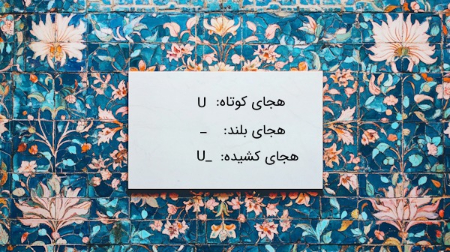 هجای کوتاه: U
هجای بلند: –
هجای کشیده: _U